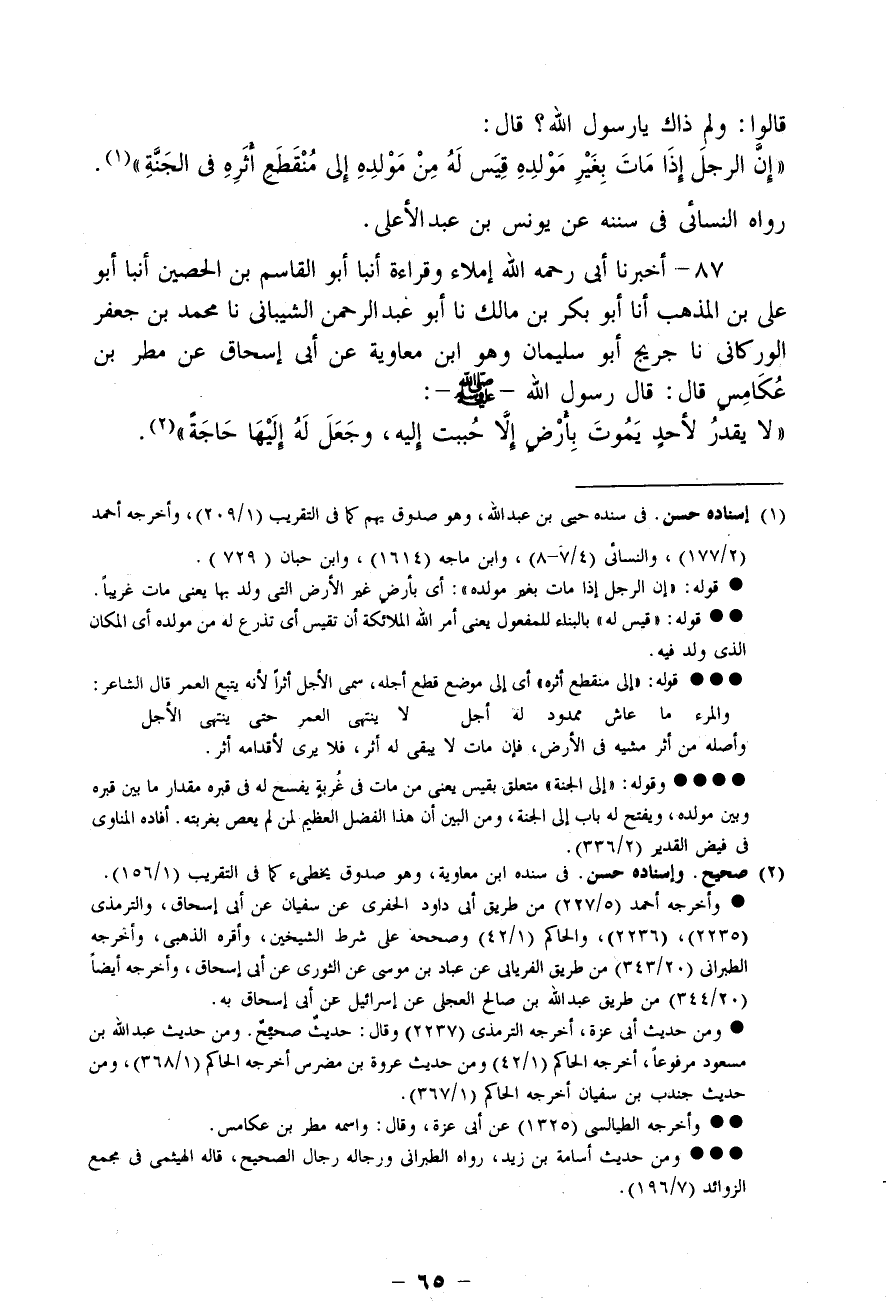 قالوا: ولم ذاك يارسول الله؟ قال:
«إِنَّ الرجلَ إِذَا مَاتَ بِغَيْرِ مَوْلدِهِ قِيَس لَهُ مِنْ مَوْلِدِهِ إلى مُنْقَطَعِ أَثَرِهِ فى الجَنَّةِ»(١).
رواه النسائى فى سننه عن يونس بن عبدالأعلى.
٨٧- أخبرنا أبى رحمه الله إملاء وقراءة أنبا أبو القاسم بن الحصين أنبا أبو
على بن المذهب أنا أبو بكر بن مالك نا أبو عبدالرحمن الشيبانى نا محمد بن جعفر
الوركانى نا جريج أبو سليمان وهو ابن معاوية عن أبى إسحاق عن مطر بن
عُكَامِسٍ قال: قال رسول الله -ﷺ-:
«لا يقدرُ لأحدٍ يَمُوتَ بِأَرْضٍ إِلَّا حُببت إليه، وجَعَلَ لَهُ إِلَيْهَا حَاجَةً»(٢).
(١) إسناده حسن. فى سنده حيى بن عبدالله، وهو صدوق يهم كما فى التقريب (٢٠٩/١)، وأخرجه أحمد
(١٧٧/٢)، والنسائى (٧/٤-٨)، وابن ماجه (١٦١٤)، وابن حبان ( ٧٢٩ ) .
● قوله: «إن الرجل إذا مات بغير مولده»: أى بأرضٍ غير الأرض التى ولد بها يعنى مات غريباً.
●● قوله: «قيس له» بالبناء للمفعول يعنى أمر الله الملائكة أن تقيس أى تذرع له من مولده أى المكان
الذى ولد فيه.
●●● قوله: «إلى منقطع أثره» أى إلى موضع قطع أجله، سمى الأجل أثراً لأنه يتبع العمر قال الشاعر:
والمرء ما عاش ممدود له أجل لا ينتهى العمر حتى ينتهى الأجل
وأصله من أثر مشيه فى الأرض، فإن مات لا يبقى له أثر، فلا يرى لأقدامه أثر.
●●●● وقوله: «إلى الجنة» متعلق بقيس يعنى من مات فى غُربةٍ يفسح له فى قبره مقدار ما بين قبره
وبين مولده، ويفتح له باب إلى الجنة، ومن البين أن هذا الفضل العظيم لمن لم يعص بغربته. أفاده المناوى
فى فيض القدير (٣٣٦/٢).
(٢) صحيح. وإسناده حسن. فى سنده ابن معاوية، وهو صدوق يخطىء كما فى التقريب (١٥٦/١).
● وأخرجه أحمد (٢٢٧/٥) من طريق أبى داود الحفرى عن سفيان عن أبى إسحاق، والترمذى
(٢٢٣٥)، (٢٢٣٦)، والحاكم (٤٢/١) وصححه على شرط الشيخين، وأقره الذهبى، وأخرجه
الطبرانى (٣٤٣/٢٠) من طريق الفريابى عن عباد بن موسى عن الثورى عن أبى إسحاق، وأخرجه أيضاً
(٣٤٤/٢٠) من طريق عبدالله بن صالح العجلى عن إسرائيل عن أبى إسحاق به.
● ومن حديث أبى عزة، أخرجه الترمذى (٢٢٣٧) وقال: حديثٌ صحيحٌ. ومن حديث عبدالله بن
مسعود مرفوعاً، أخرجه الحاكم (٤٢/١) ومن حديث عروة بن مضرس أخرجه الحاكم (٣٦٨/١)، ومن
حديث جندب بن سفيان أخرجه الحاكم (٣٦٧/١).
●● وأخرجه الطيالسى (١٣٢٥) عن أبى عزة، وقال: واسمه مطر بن عكامس.
●●● ومن حديث أسامة بن زيد، رواه الطبرانى ورجاله رجال الصحيح، قاله الهيثمى فى مجمع
الزوائد (١٩٦/٧).
- ٦٥ -